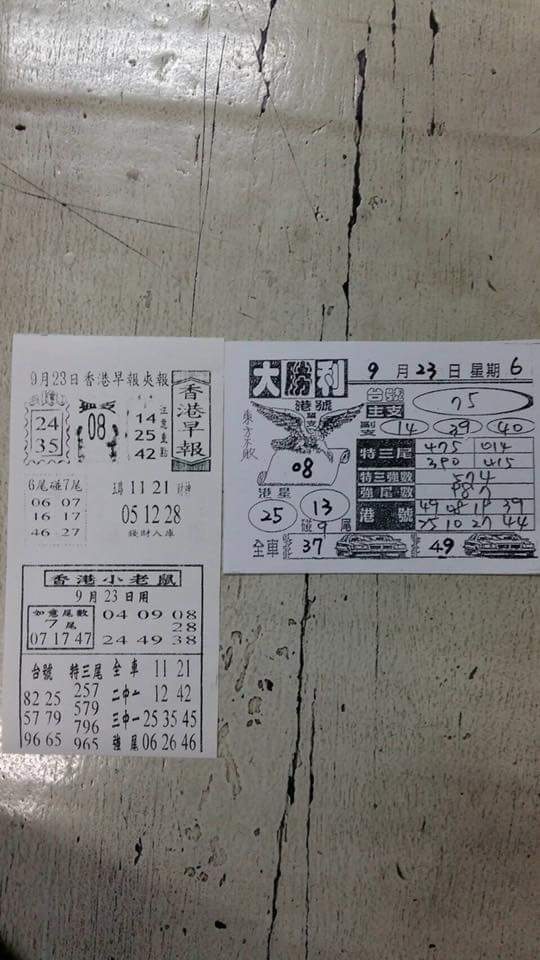 9月23日香港早報夾報
香港早報
24
35
08
14
25
42
6尾碰7尾
06 07
16 17
46 27
11 21 財神
05 12 28
發財入庫
香港小老鼠
9月23日用
如意尾數
7尾
07 17 47
04 09 08
28
24 49 38
台號 特三尾 全車 11 21
82 25 257 二中一 12 42
57 79 579 三中一 25 35 45
96 65 796 強尾 06 26 46
965
大勝利
9月23日 星期6
港號
08
港星
25
13
碰9尾
全車 37 49
台號
主支
75
副支 14 39 40
特三尾 475 014
390 415
特三強數 574
強尾數
港號 49 08 19 39
25 10 27 44